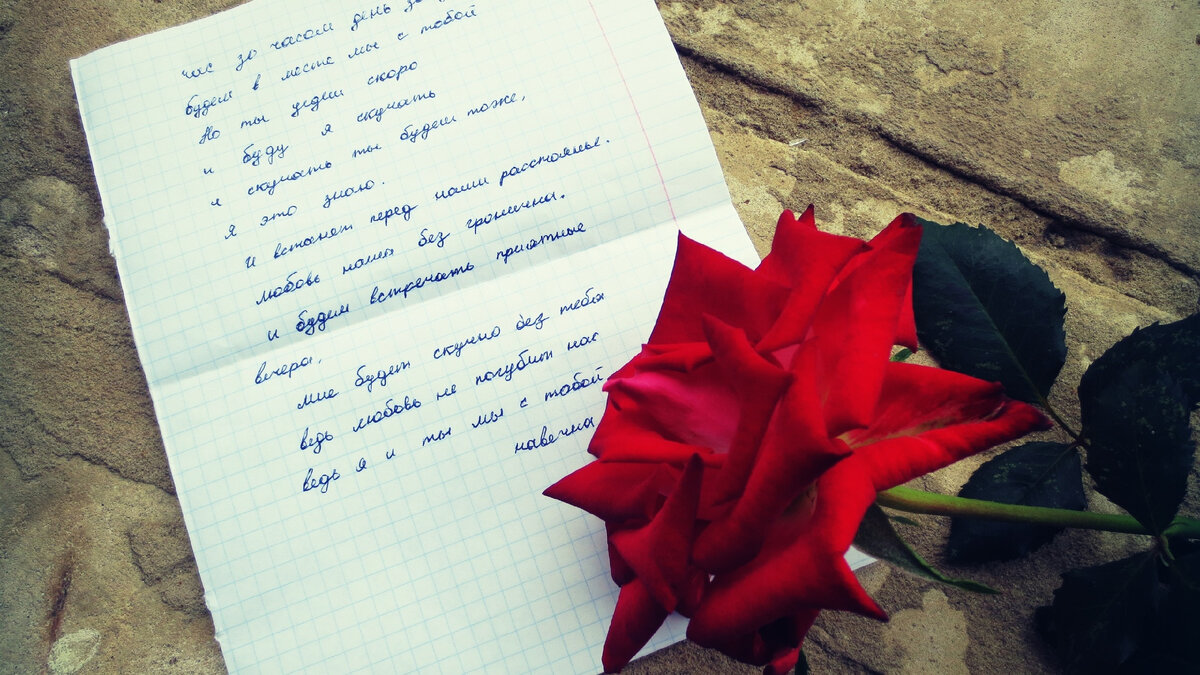 час за часом день за
будем в месте мы с тобой
Но ты уедеш скоро
и буду я скучать
и скучать ты будеш тоже,
я это знаю.
И встанет перед нами расстоянье.
любовь наша без гранична.
и будем встречать приятные
вечера,
мне будет скучно без тебя
ведь любовь не погубит нас
ведь я и ты мы с тобой
навечна